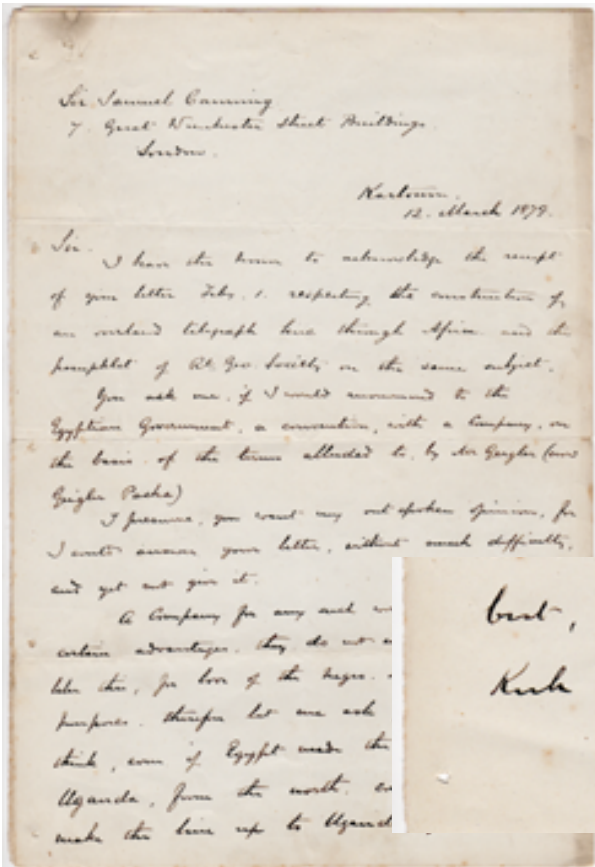 Sir Samuel Canning
7. Great Winchester Street Buildings.
London.
Kartoum.
12. March 1879.
Sir.
I have the honor to acknowledge the receipt
of your letter Feb. 1. respecting the construction of
an overland telegraph line through Africa and the
pamphlet of Rl. Geo. Society on the same subject.
You ask me, if I would recommend to the
Egyptian Government, a convention, with a Company, on
the basis of the terms alluded to, by Mr Geigler (now
Geigler Pasha)
I presume, you want my out spoken opinion, for
I could answer your letter, without much difficulty,
and yet not give it.
A Company for any such
certain advantages. they do not
take this, for love of the negro.
purposes. therefore let me ask
think, even if Egypt made the
Uganda, from the north.
make the line up to Ugand
but,